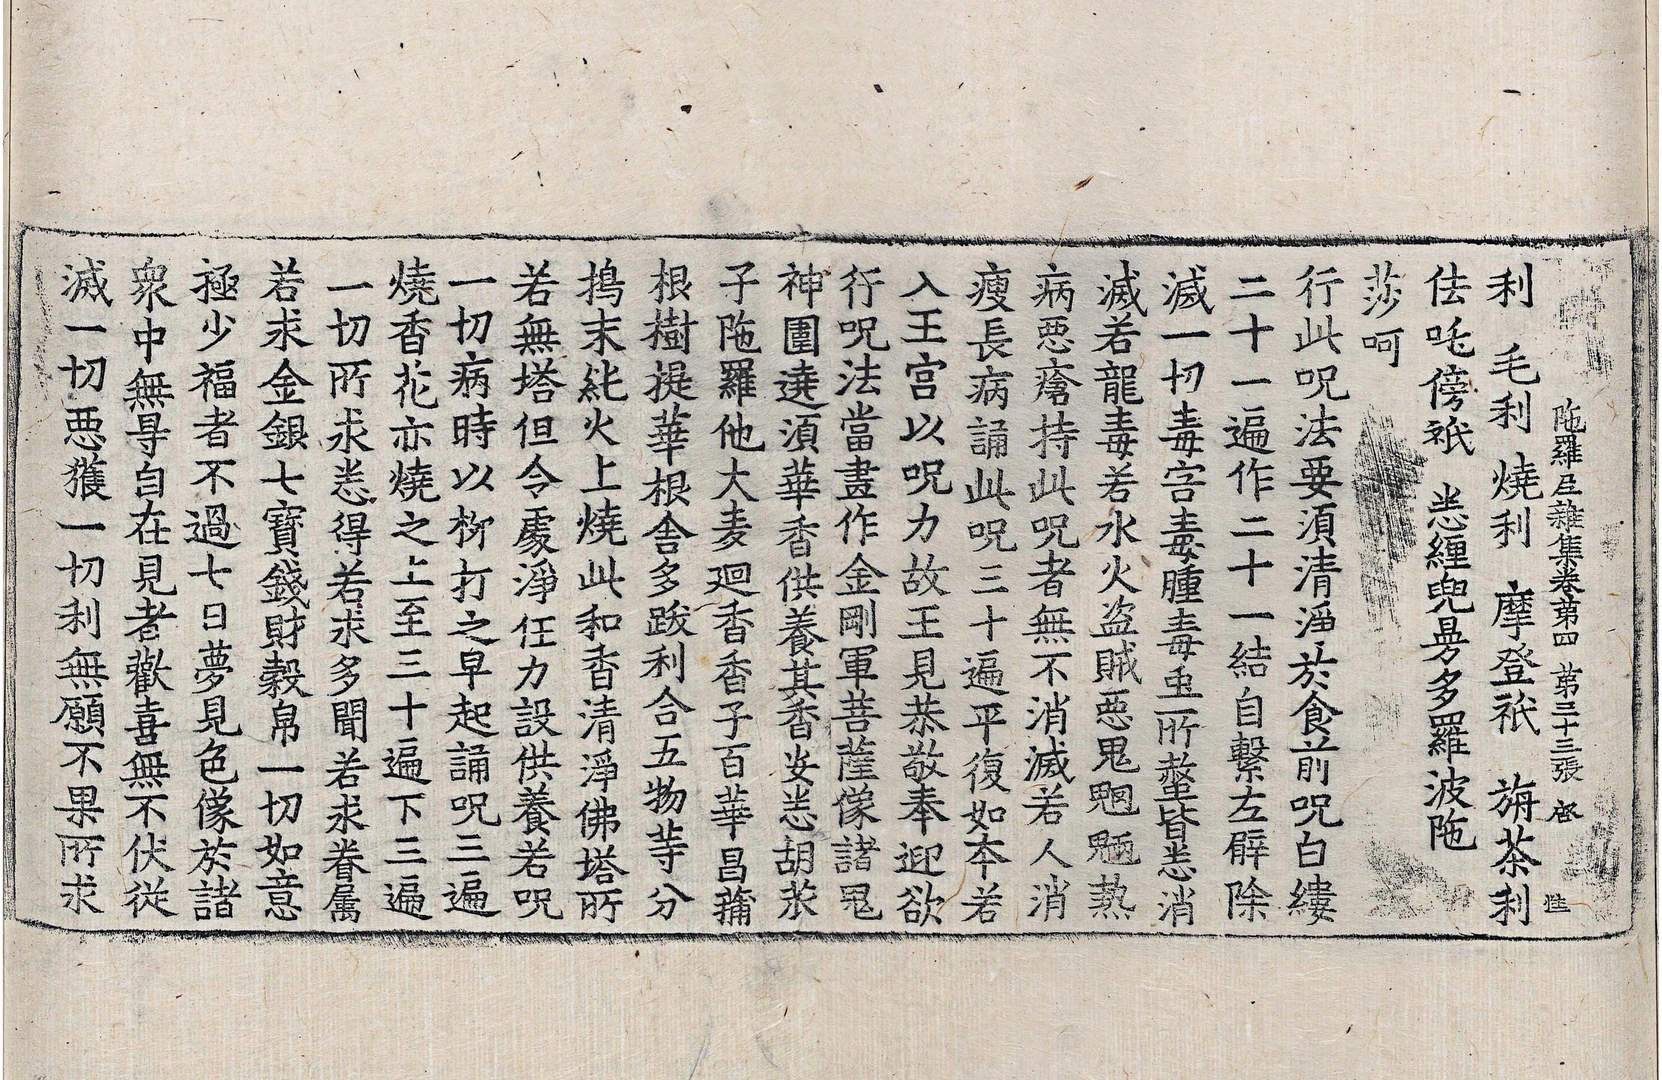 陁羅尼雜集卷第四 第三十三張 啓
利 毛利 燒利 摩登祇 旃茶利
佉吒傍祇 悉緾兜昙多羅波陁
莎呵
行此呪法要須清淨於食前呪白縷
二十一遍作二十一結自繫左臂除
滅一切毒害毒腫毒虫所螫皆悉消
滅若龍毒若水火盗賊惡鬼魍魎熱
病惡瘡持此呪者無不消滅若人消
瘦長病誦此呪三十遍平復如本若
入王宮以呪力故王見恭敬奉迎欲
行呪法當畫作金剛軍菩薩像諸鬼
神圍遶湏華香供養其香安悉胡荽
子陁羅他大麦迴香香子百華昌蒱
根樹提華根舍多跋利合五物等分
搗末㲽火上燒此和香清淨佛塔所
若無塔但令處淨任力設供養若呪
一切病時以栁打之早起誦呪三遍
燒香花亦燒之上至三十遍下三遍
一切所求悉得若求多聞若求眷属
若求金銀七寶錢財穀帛一切如意
極少福者不過七日夢見色像於諸
衆中無㝵自在見者歡喜無不伏從
滅一切惡獲一切利無願不果所求